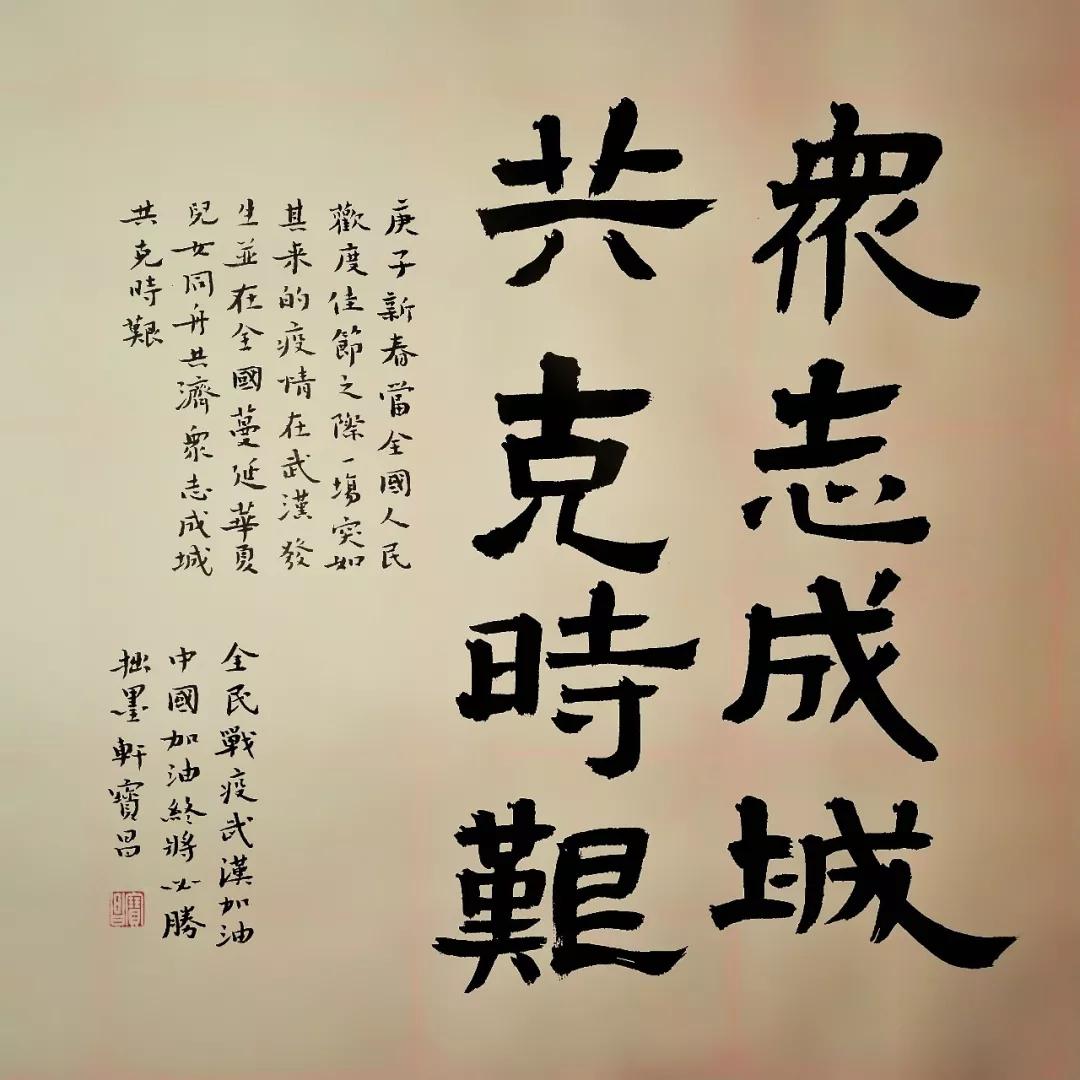 衆志成城
共克時艱
庚子新春當全國人民
歡度佳節之際一場突如
其来的疫情在武漢發
生並在全國蔓延華夏
兒女同舟共濟衆志成城
共克時艱
全民戰疫武漢加油
中國加油終將必勝
拙墨軒寶昌
寶昌